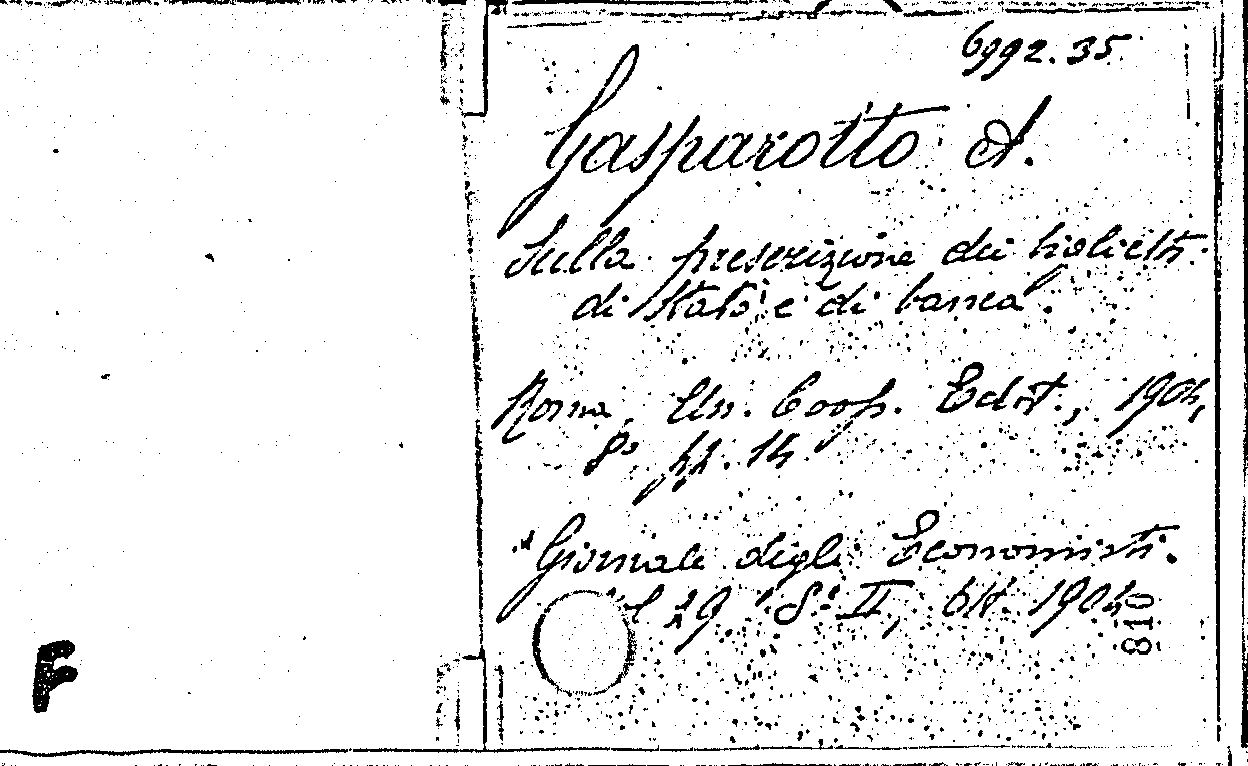 6992.35
Gasparotto A.
Sulla prescrizione dei biglietti
di Stato e di banca.
Roma, Un. Coop. Edit., 1904,
8° pp. 14
Giornale degli Economisti.
29, S. II, Ott. 1904
810
F